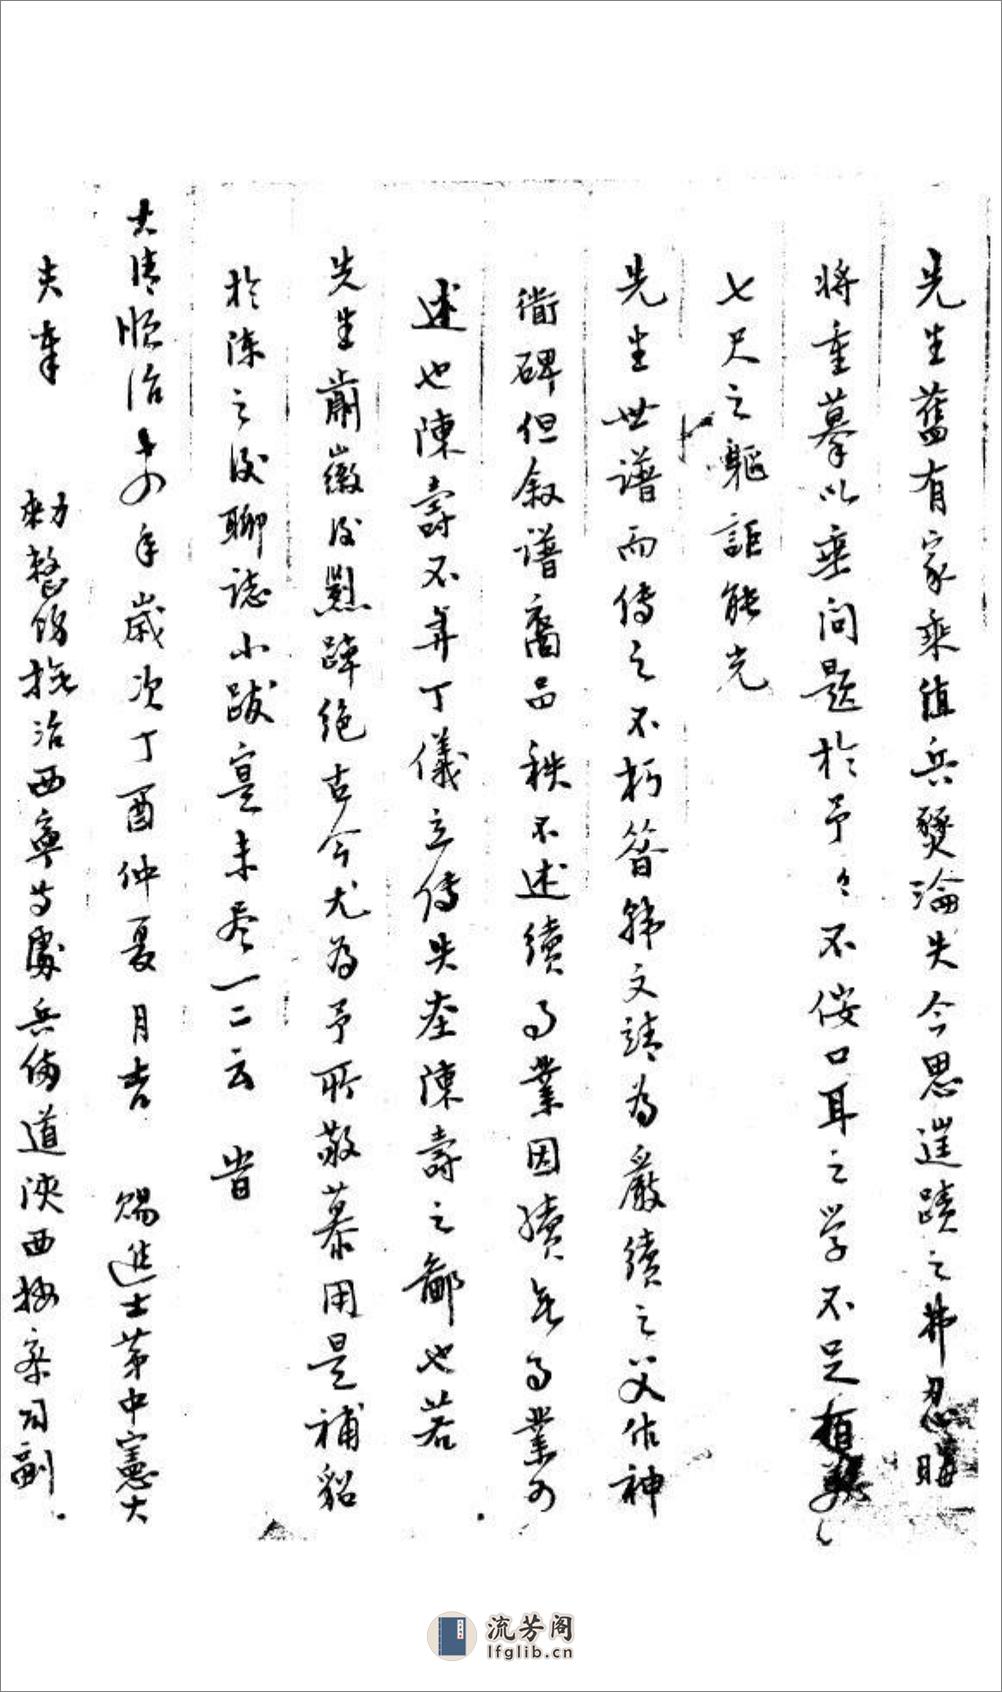 先生舊有家乘值兵燹淪失今思遺蹟之弗忍
將重摹以垂問題於予々不佞口耳之学不足
七尺之軀詎能光
先生世譜而傳之不朽昔韩文靖為嚴續之父作神
衜碑但叙譜裔品秩不述續事業因續無事業可
述也陳壽不弁丁儀立傳失在陳壽之鄙也若
先生肅徽後懿踔绝古今尤為予所敬慕用是補貂
於陈之後聊誌小跋寔未尽一二云 旹
大清順治十四年歲次丁酉仲夏月吉 赐進士第中憲大
夫奉 勅整飭撫治西寧等處兵俻道陝西按察司副
流芳阁
lfglib.cn